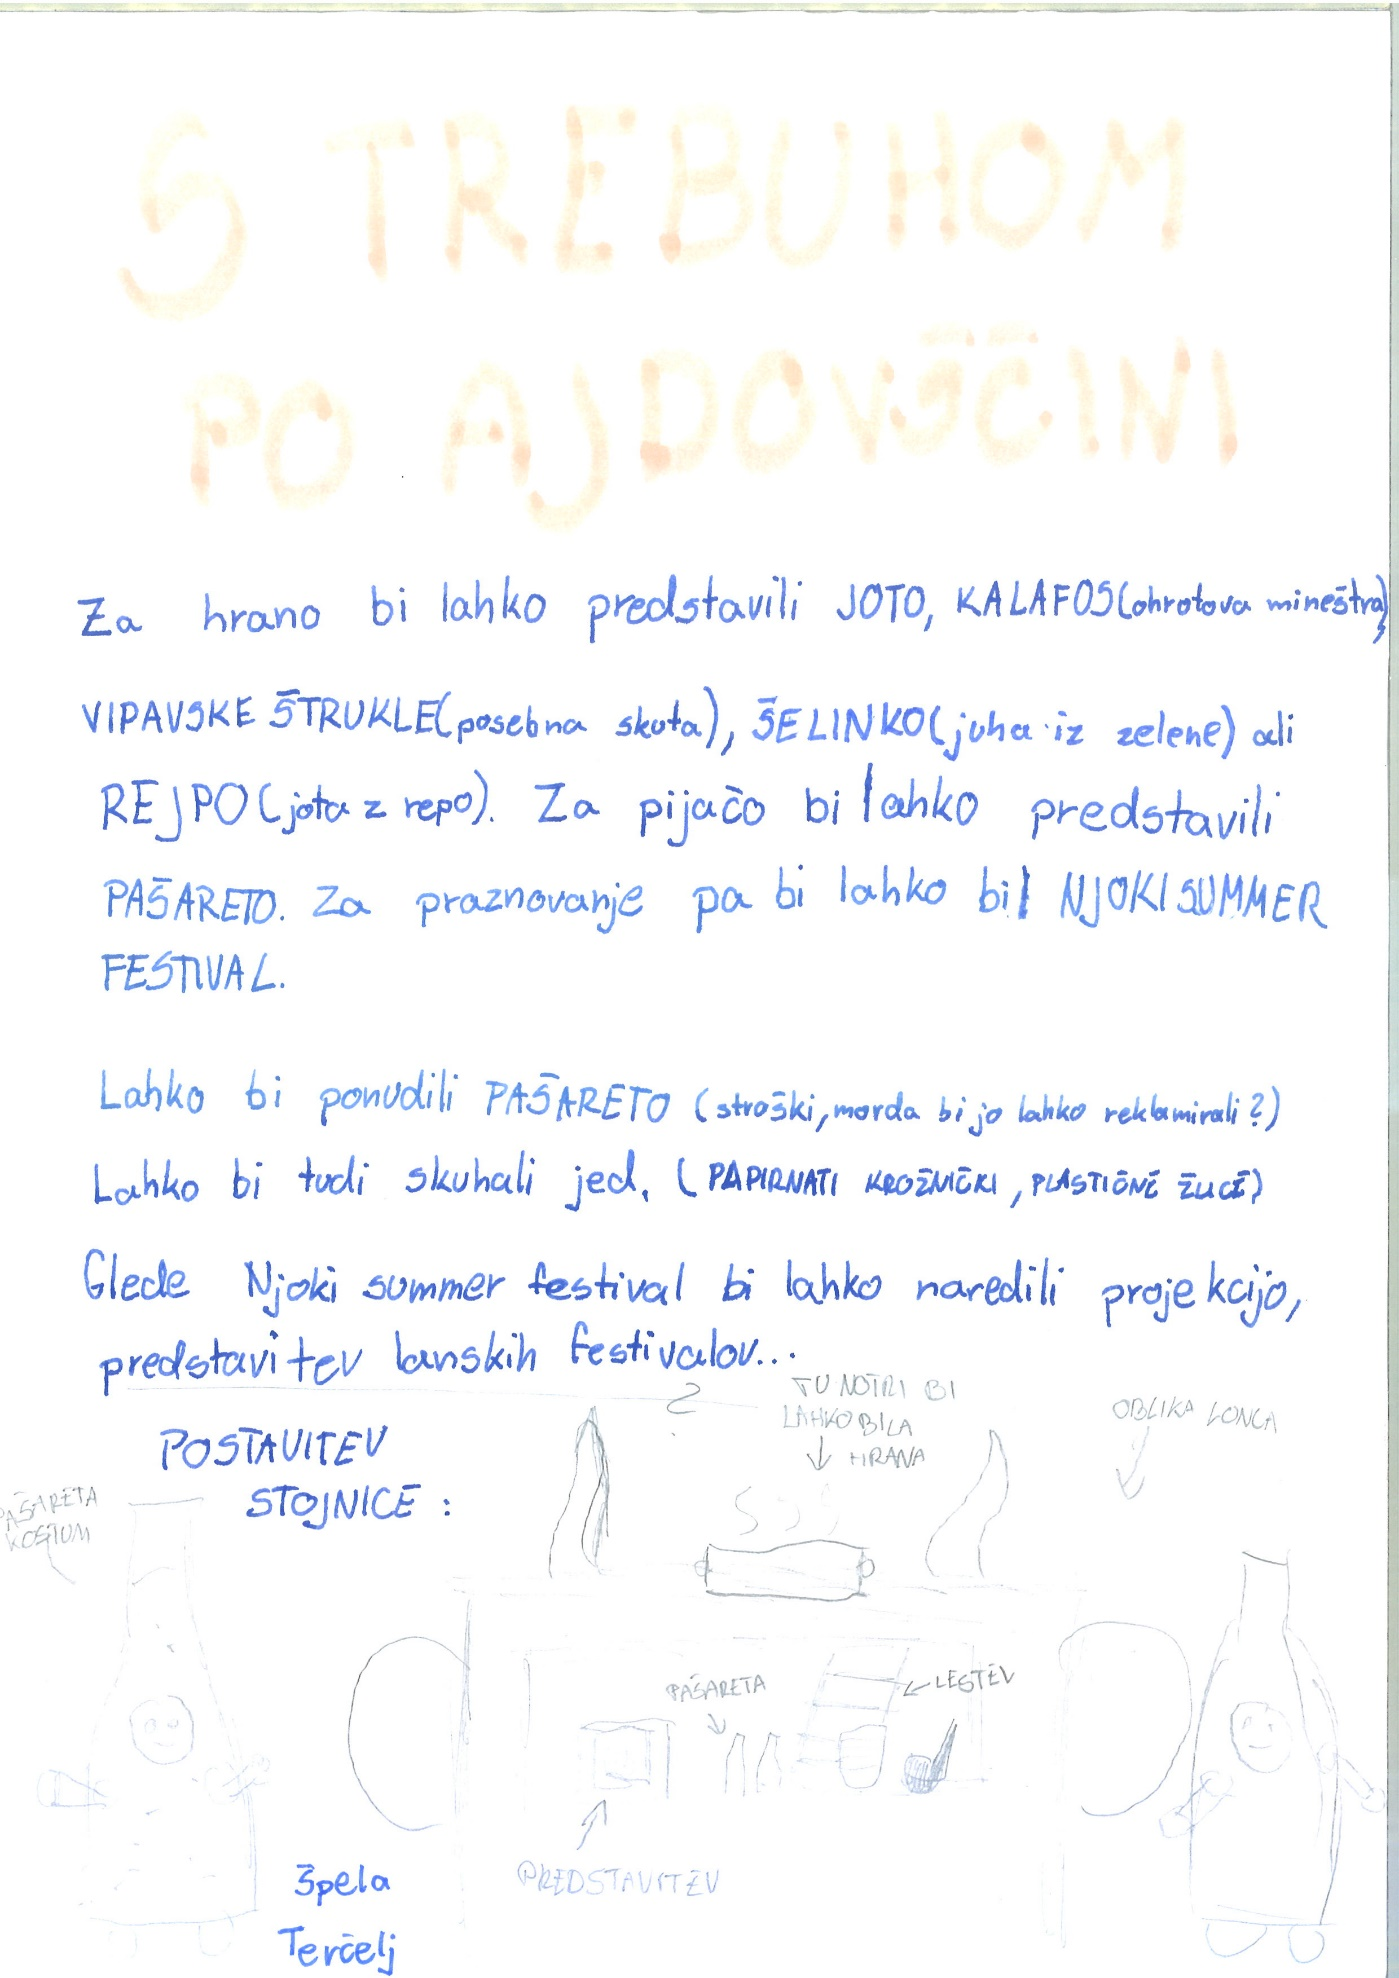 S TREBUHOM
PO AJDOVŠČINI
Za hrano bi lahko predstavili JOTO, KALAFOS(ohrotova mineštra),
VIPAVSKE ŠTRUKLE(posebna skuta), ŠELINKO(juha iz zelene) ali
REJPO(jota z repo). Za pijačo bi lahko predstavili
PAŠARETO. Za praznovanje pa bi lahko bil NJOKI SUMMER
FESTIVAL.
Lahko bi ponudili PAŠARETO (stroški, morda bi jo lahko reklamirali?)
Lahko bi tudi skuhali jed. (PAPIRNATI KROŽNIČKI, PLASTIČNE ŽLICE)
Glede Njoki summer festival bi lahko naredili projekcijo,
predstavitev lanskih festivalov...
?
TU NOTRI BI
LAHKO BILA
HRANA
OBLIKA LONCA
POSTAVITEV
STOJNICE:
PAŠARETA
KOSTUM
PAŠARETA
LESTEV
PREDSTAVITEV
Špela
Terčelj